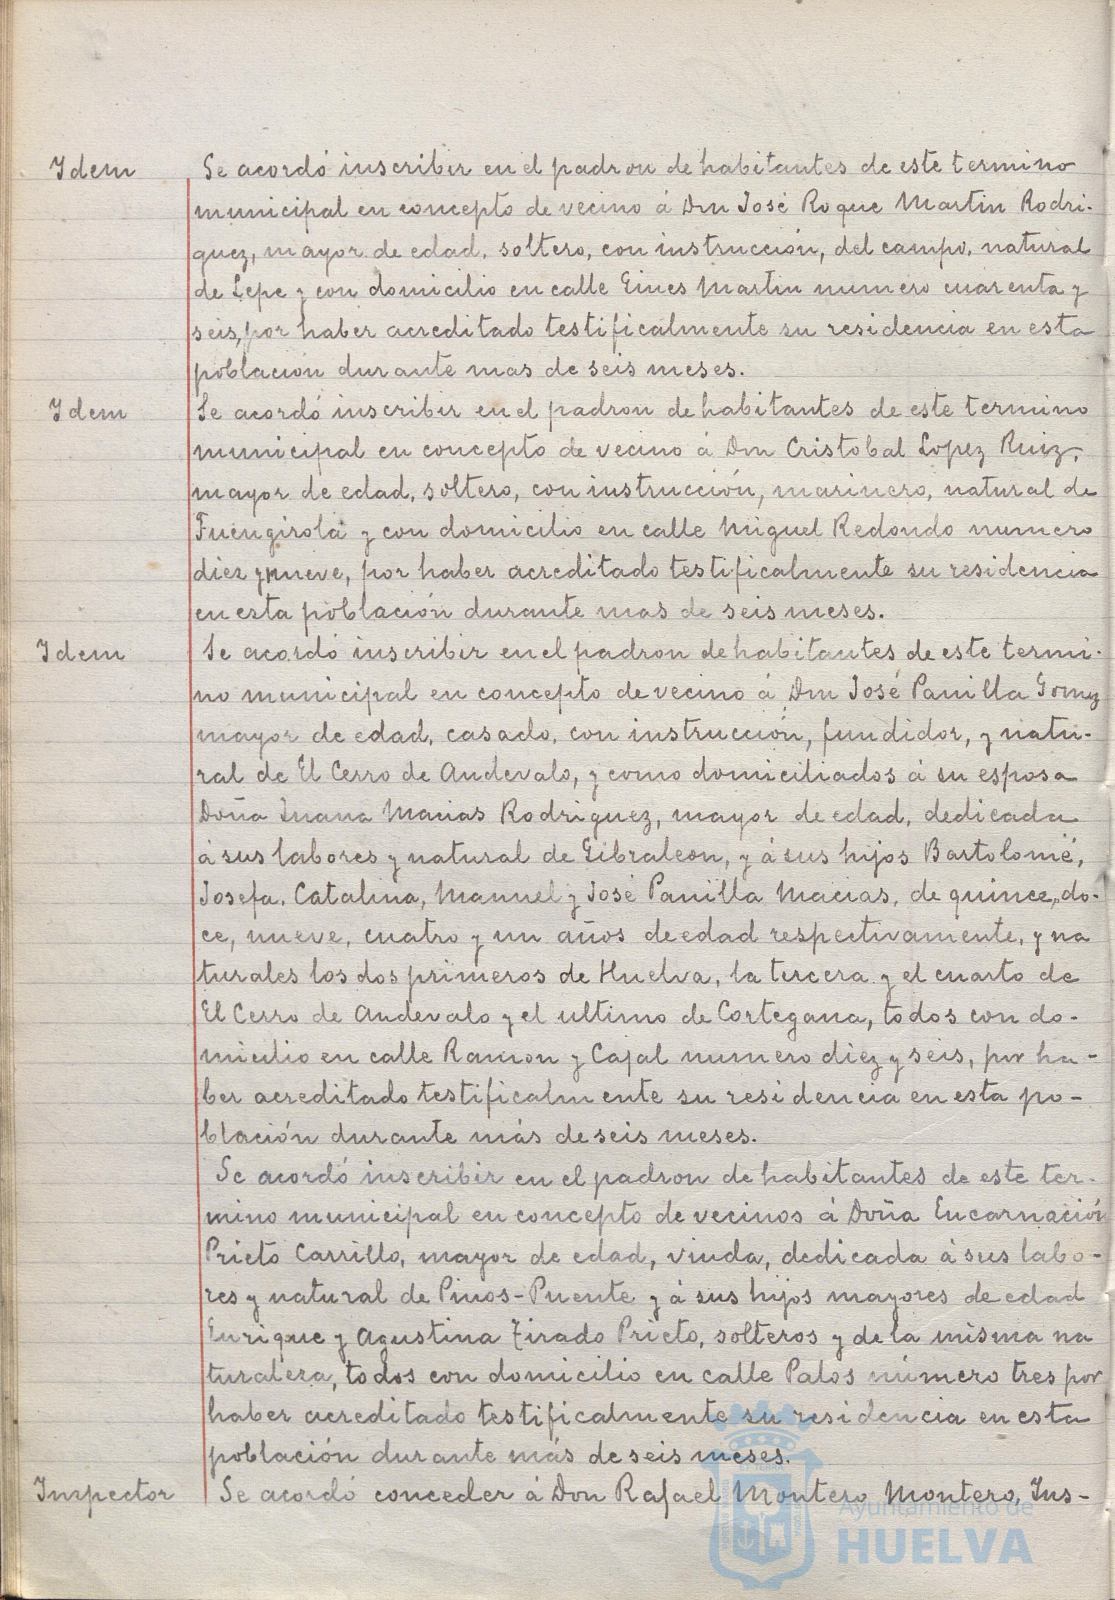 Idem
Se acordó inscribir en el padron de habitantes de este termino
municipal en concepto de vecino á Dm José Roque Martin Rodri-
guez, mayor de edad, soltero, con instrucción, del campo, natural
de Lepe y con domicilio en calle Gines Martin numero cuarenta y
seis, por haber acreditado testificalmente su residencia en esta
población durante mas de seis meses.
Idem
Se acordó inscribir en el padron de habitantes de este termino
municipal en concepto de vecino á Dm Cristobal Lopez Ruiz,
mayor de edad, soltero, con instrucción, marinero, natural de
Fuengirola y con domicilio en calle Miguel Redondo numero
diez y nueve, por haber acreditado testificalmente su residencia
en esta población durante mas de seis meses.
Idem
Se acordó inscribir en el padron de habitantes de este termi-
no municipal en concepto de vecino á Dm José Panilla Gomez
mayor de edad, casado, con instrucción, fundidor, y natu-
ral de El Cerro de Andevalo, y como domiciliados á su esposa
Doña Juana Macias Rodriguez, mayor de edad, dedicada
á sus labores y natural de Gibraleon, y á sus hijos Bartolomé,
Josefa, Catalina, Manuel y José Panilla Macias, de quince, do-
ce, nueve, cuatro y un años de edad respectivamente, y na
turales los dos primeros de Huelva, la tercera y el cuarto de
El Cerro de Andevalo y el ultimo de Cortegana, todos con do-
micilio en calle Ramon y Cajal numero diez y seis, por ha-
ber acreditado testificalmente su residencia en esta po-
blación durante más de seis meses.
Se acordó inscribir en el padron de habitantes de este ter-
mino municipal en concepto de vecinos á Doña Encarnación
Prieto Carrillo, mayor de edad, viuda, dedicada á sus labo-
res y natural de Pinos-Puente y á sus hijos mayores de edad
Enrique y Agustina Tirado Prieto, solteros y de la misma na
turaleza, todos con domicilio en calle Palos número tres por
haber acreditado testificalmente su residencia en esta
población durante más de seis meses.
Inspector
Se acordó conceder á Don Rafael Montero Montero, Ins-
Ayuntamiento de
HUELVA